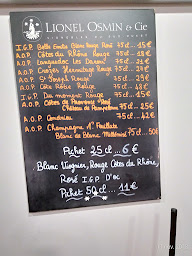 LIONEL OSMIN & Cie
I.G.P. Belle Emilie Blanc Rouge Rosé 75cl ...15€
A.O.P. Côtes du Rhône Rouge 75cl ...18€
A.O.P. Languedoc Les Darons 75cl ...21€
A.O.P. Crozes Hermitage Rouge 75cl ...
A.O.P. St Joseph Rouge 75cl ...
A.O.P. Côte Rôtie Rouge 75cl ...
I.G.P. Du moment Rouge 75cl ...15€
A.O.P. Côtes de Provence Rosé
Château de Pampelonne 75cl ...25€
A.O.P. Condrieu 75cl ...42€
A.O.P. Champagne 1er
Blanc de Blanc Millésimé 75cl ...50€
Pichet 25 cl ...6 €
Blanc Viognier, Rouge Côtes du Rhône,
Rosé I.G.P. D'oc
Pichet 50cl ...11€